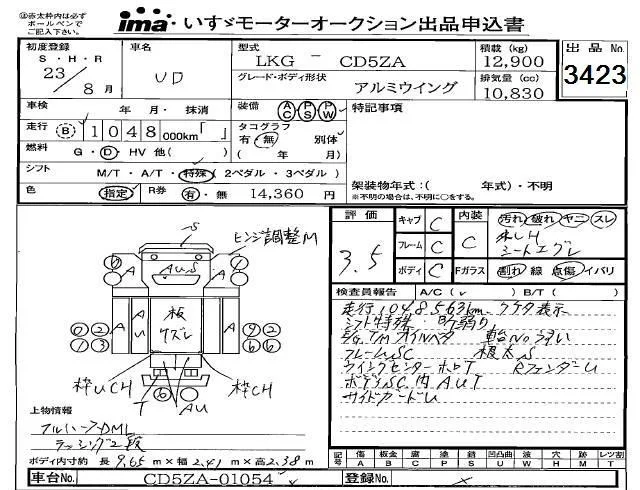 ㊟赤太枠内は必ず
ボールペンで
ご記入下さい。
ima・いすゞモーターオークション出品申込書
初度登録
S・H・R
23
8月
車名
UD
型式
LKG ー CD5ZA
グレード・ボディ形状
アルミウイング
積載 (kg)
12,900
排気量 (cc)
10,830
出品No.
3423
車検
年 月・抹消
装備 AC PS PW
特記事項
走行 B 1048 000km「 」
タコグラフ
有・無 別体
( 年 月)
燃料
G・D・HV 他( )
シフト
M/T・A/T・特殊(2ペダル・3ペダル)
架装物年式:( 年式)・不明
※不明の場合は、不明に○をする。
色
指定
R券
有・無 14,360 円
評価
3.5
キャブ C
フレーム C
ボディ C
内装
C
Fガラス
汚れ 破れ ヤニ スレ
シートエグレ
割れ 線 点傷 イバリ
S
ヒンジ調整M
AUS
A
A
A
AU
板
ケズレ
A
枠UCH
T
AU
枠CH
検査員報告 A/C( ) B/T( )
走行1048563km.
シフト特殊.
フレームSC
ウイングセンターホロT RフェンダーU
ボディSC 内AUT
サイドガードU
上物情報
ラッシング2段
ボディ内寸約 長 9.65 m×幅 2.41 m×高 2.38 m
記号
傷 A
板金 B
腐 C
塗 P
錆 S
凹凸曲 U
波 W
穴 H
跡 M
レツ割 T
車台No. CD5ZA-01054
登録No.